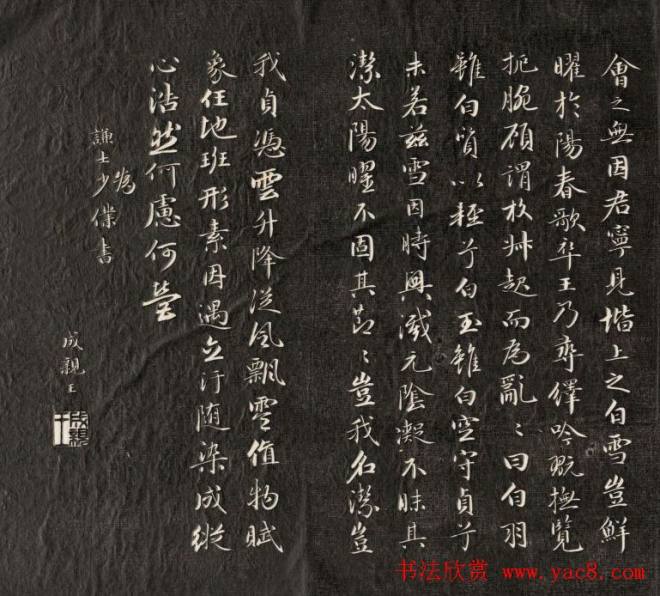 會之無因君寧見堦上之白雪豈鮮
曜於陽春歌卒王乃尋繹吟翫撫覽
扼腕顧謂枚叔起而為亂〻曰白羽
雖白質以輕兮白玉雖白空守貞兮
未若茲雪因時興滅元陰凝不昧其
潔太陽曜不固其節〻豈我名潔豈
我貞憑雲升降從風飄零值物賦
象任地班形素因遇立汙隨染成縱
心浩然何慮何營
為
謙士少僕書
成親王
书法欣赏 www.yac8.com